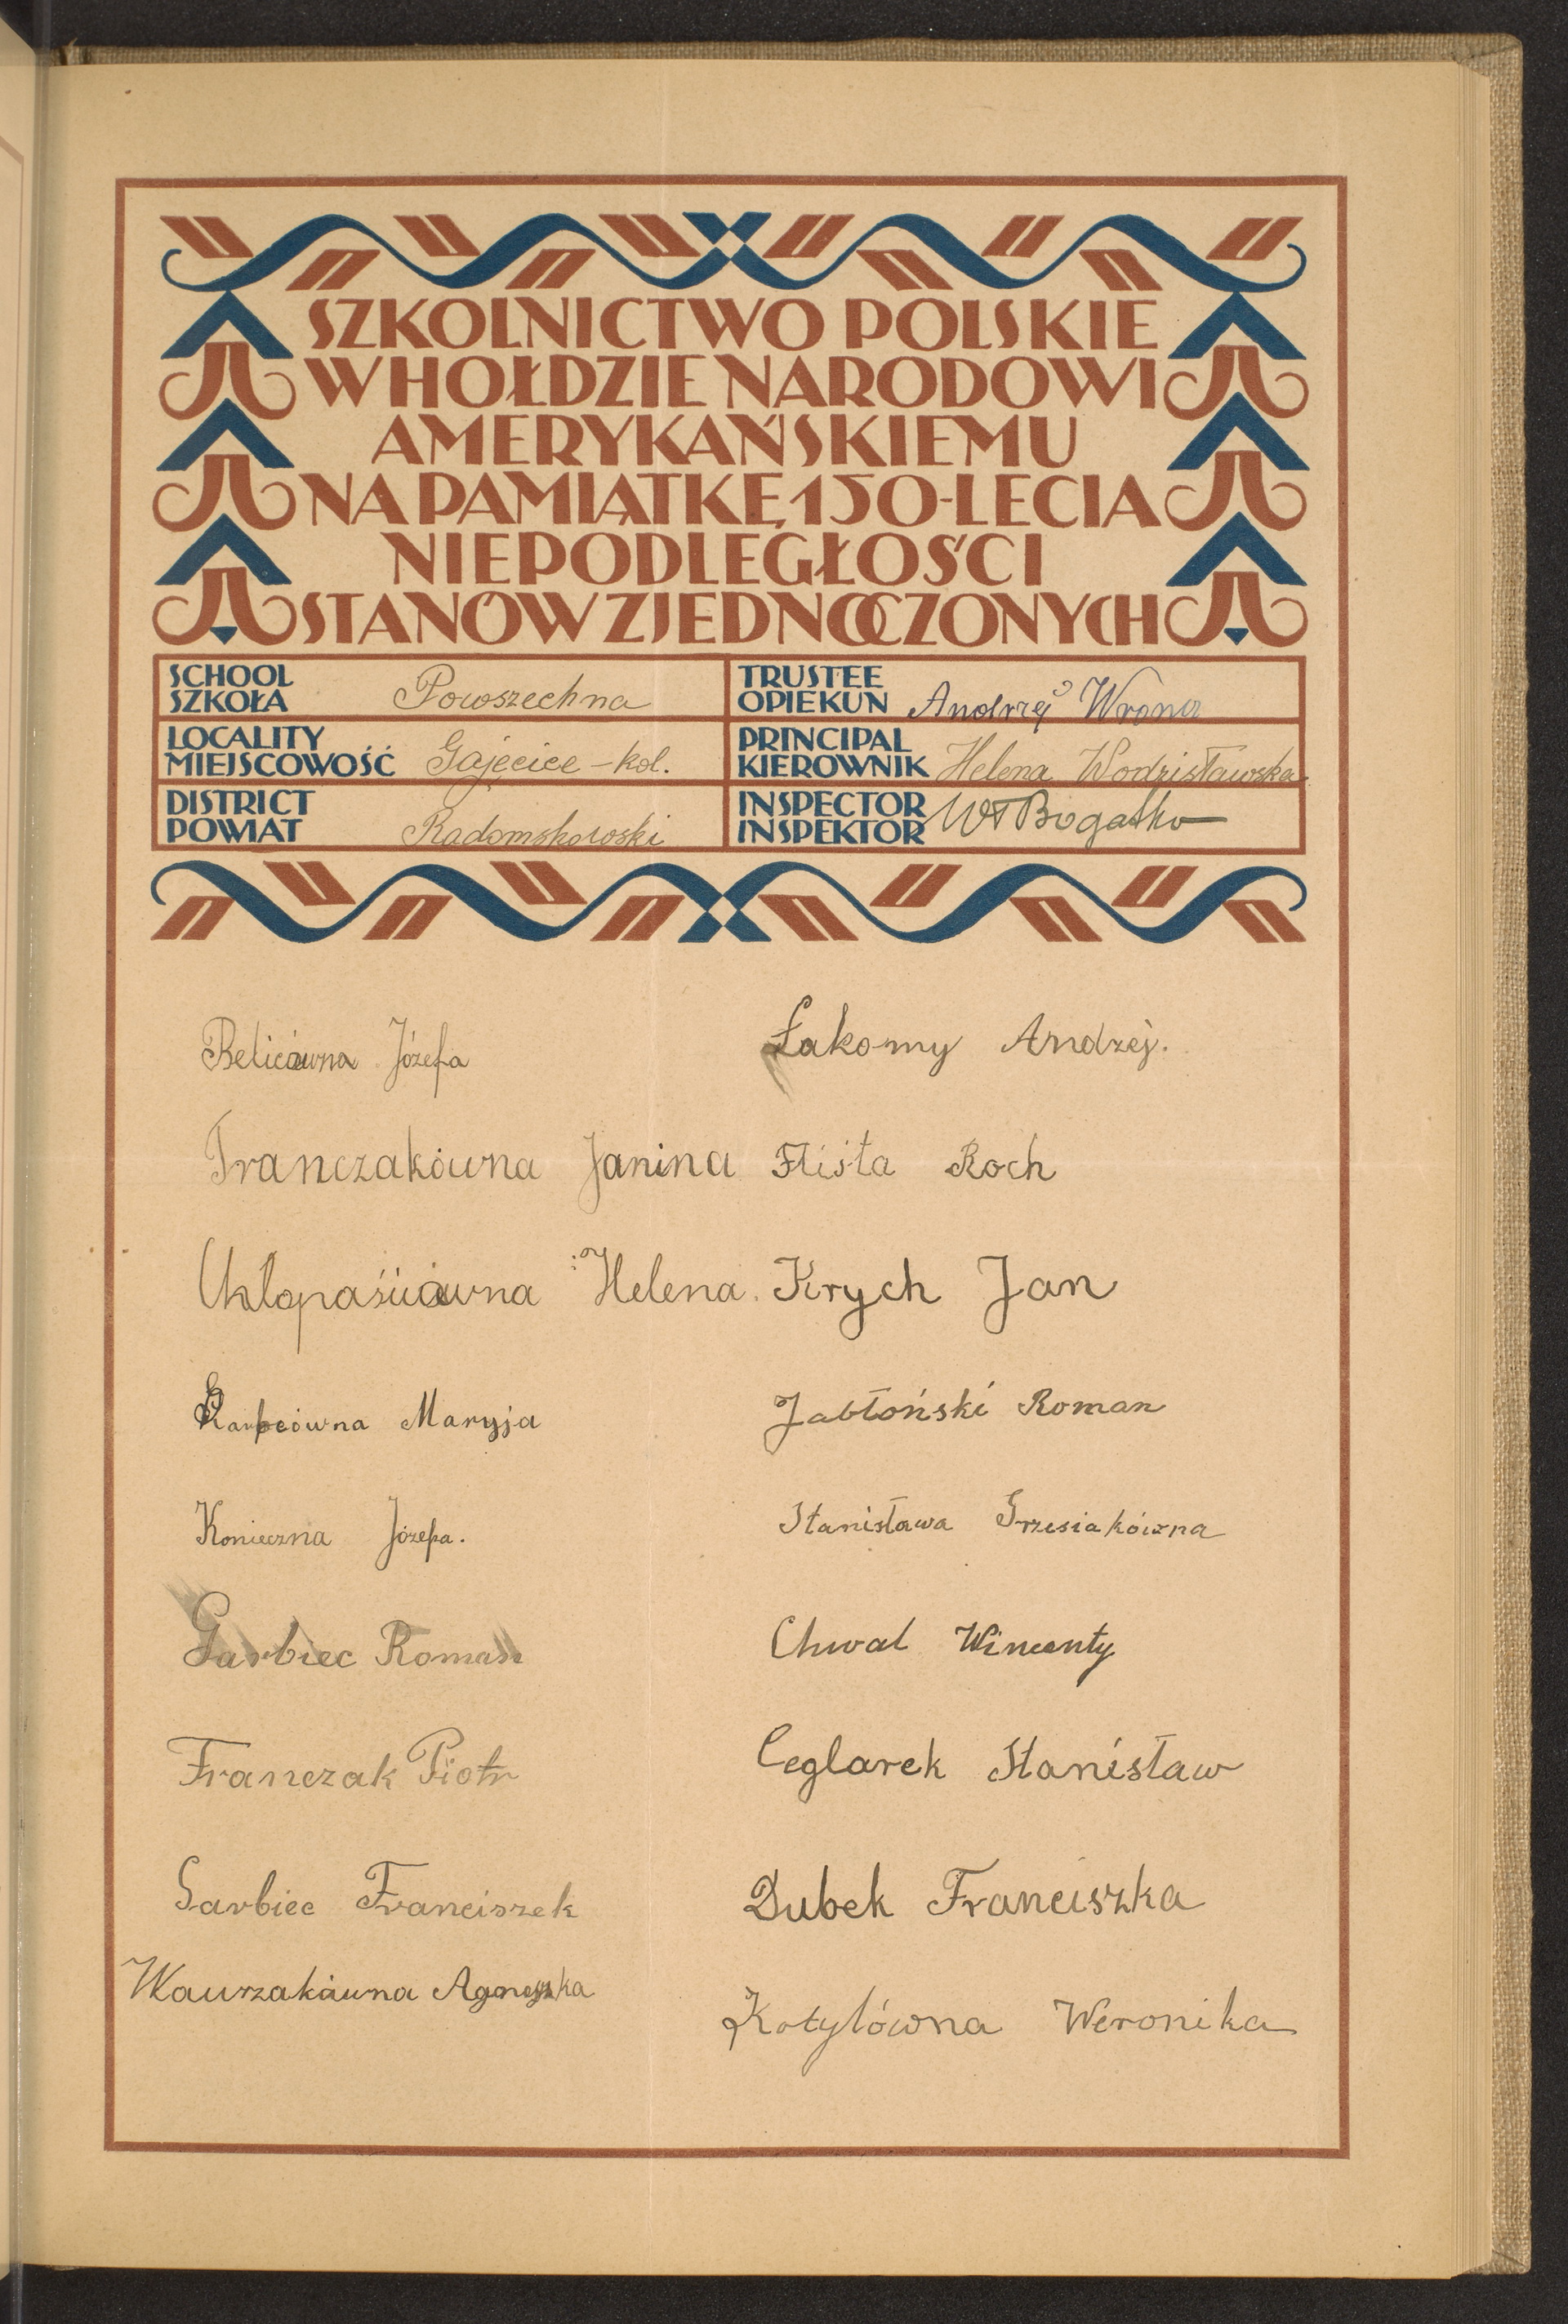 SZKOLNICTWO POLSKIE
W HOŁDZIE NARODOWI
AMERYKAŃSKIEMU
NA PAMIĄTKĘ 150-LECIA
NIEPODLEGŁOŚCI
STANÓW ZJEDNOCZONYCH
SCHOOL
SZKOŁA Powszechna
TRUSTEE
OPIEKUN Andrzej Wrona
LOCALITY
MIEJSCOWOŚĆ Gajęcice - kol.
PRINCIPAL
KIEROWNIK Helena Wodzisławska
DISTRICT
POWIAT Radomskowski
INSPECTOR
INSPEKTOR Wł Bogatko
Belicówna Józefa
Franczakówna Janina
Helena.
Maryja
Konieczna Józefa.
Garbiec Roman
Franczak Piotr
Garbiec Franciszek
Wawrzakówna Agnieszka
Łakomy Andrzej.
Flista Roch
Krych Jan
Jabłoński Roman
Stanisława Grzesiakówna
Chwal Wincenty
Ceglarek Stanisław
Dubek Franciszka
Kotylówna Weronika